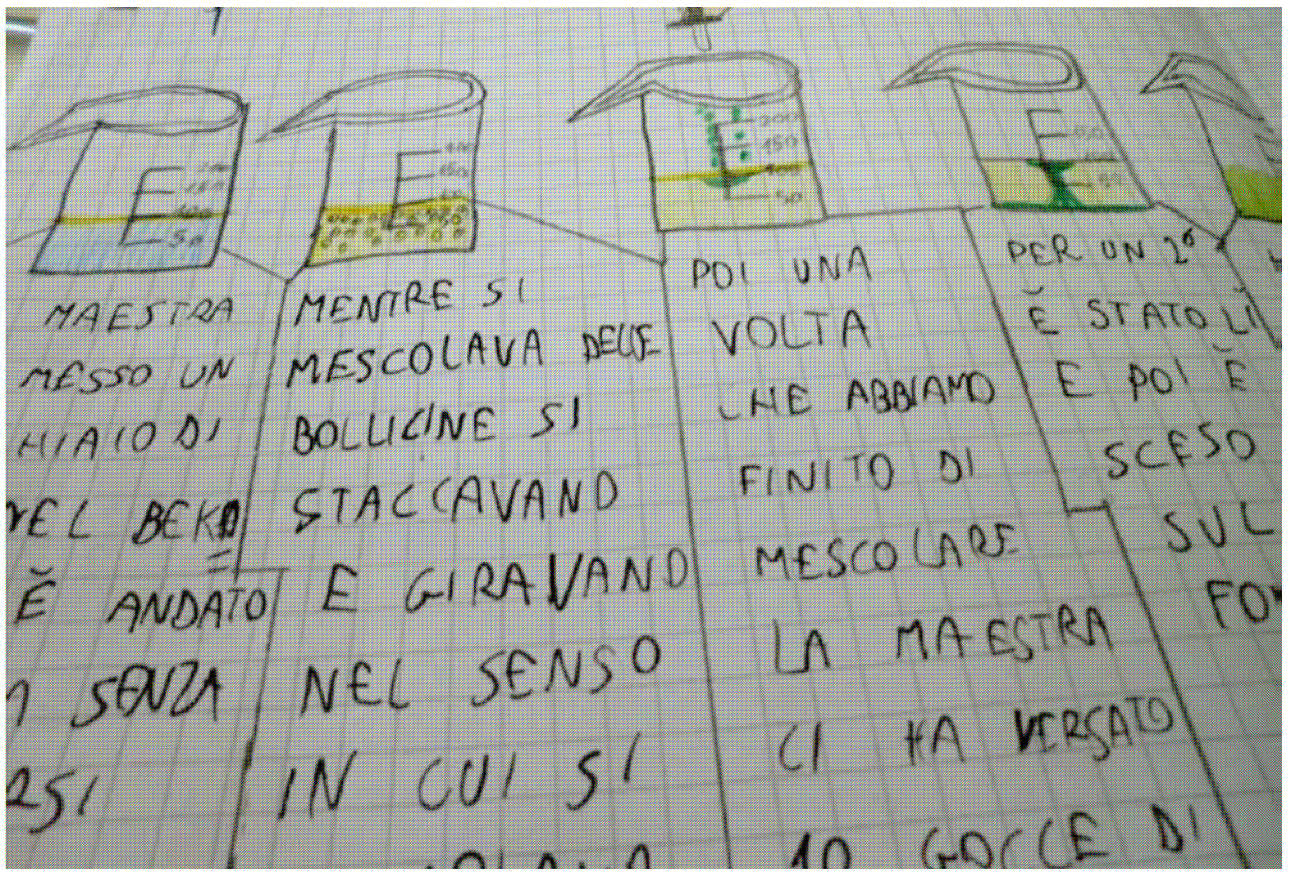 MAESTRA
MESSO UN
DI
BEK
È ANDATO
SENZA
MENTRE SI
MESCOLAVA DELLE
BOLLICINE SI
STACCAVANO
E GIRAVANO
NEL SENSO
IN CUI SI
POI UNA
VOLTA
CHE ABBIAMO
FINITO DI
MESCOLARE
LA MAESTRA
CI HA VERSATO
10 GOCCE DI
PER UN 2°
È STATO LÌ
E POI È
SCESO
SUL
200
150
100
50